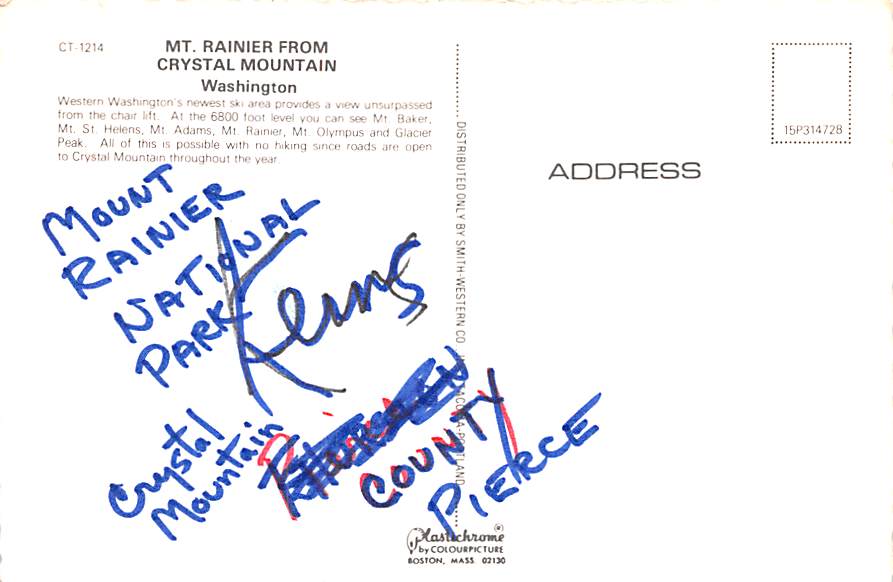 CT-1214
MT. RAINIER FROM
CRYSTAL MOUNTAIN
Washington
Western Washington's newest ski area provides a view unsurpassed
from the chair lift. At the 6800 foot level you can see Mt. Baker,
Mt. St. Helens, Mt. Adams, Mt. Rainier, Mt. Olympus and Glacier
Peak. All of this is possible with no hiking since roads are open
to Crystal Mountain throughout the year.
MOUNT
RAINIER
NATIONAL
PARK
Crystal
Mountain
COUNTY
PIERCE
DISTRIBUTED ONLY BY SMITH-WESTERN CO. TACOMA-PORTLAND
15P314728
ADDRESS
Plastichrome
®
by COLOURPICTURE
BOSTON, MASS 02130